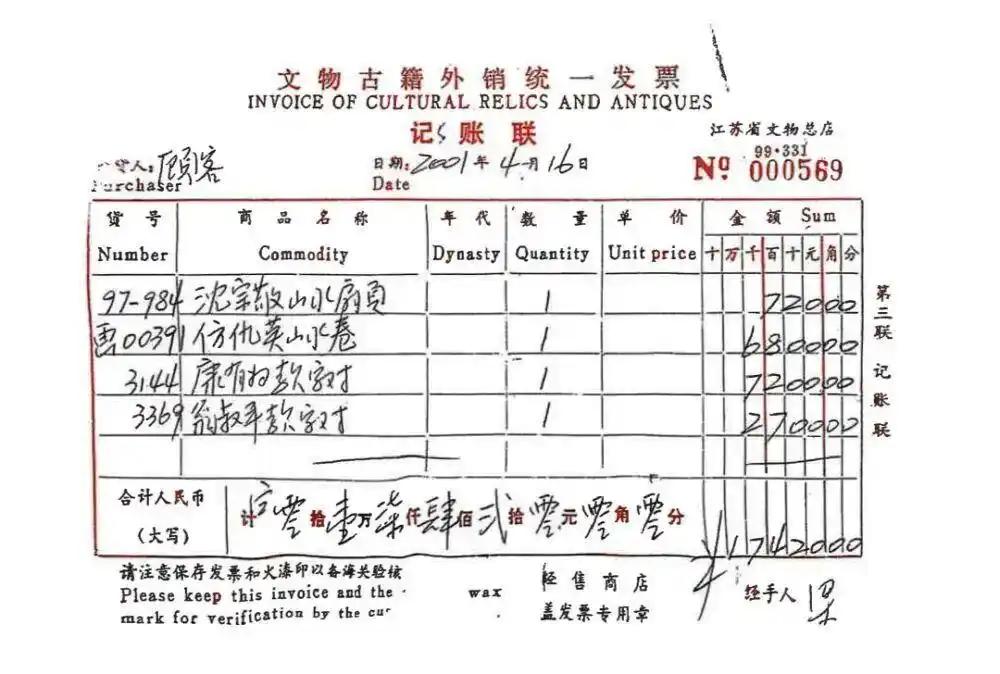 文物古籍外销统一发票
INVOICE OF CULTURAL RELICS AND ANTIQUES
记账联
江苏省文物总店
99·331
人：顾客
Purchaser
日期：2001年4月16日
Date
Nº 000569
货号 商品名称 年代 数量 单价 金额 Sum
Number Commodity Dynasty Quantity Unit price 十万千百十元角分
97-984 沈宗敬山水扇页 1 72000
00391 仿仇英山水卷 1 680000
3144 康有为款字对 1 720000
3369 翁叔平款字对 1 270000
合计人民币
（大写）
计 零拾壹万柒仟肆佰贰拾零元零角零分
¥1742000
第三联 记账联
请注意保存发票和火漆印以备海关验核
Please keep this invoice and the wax
mark for verification by the
经售商店
盖发票专用章
经手人